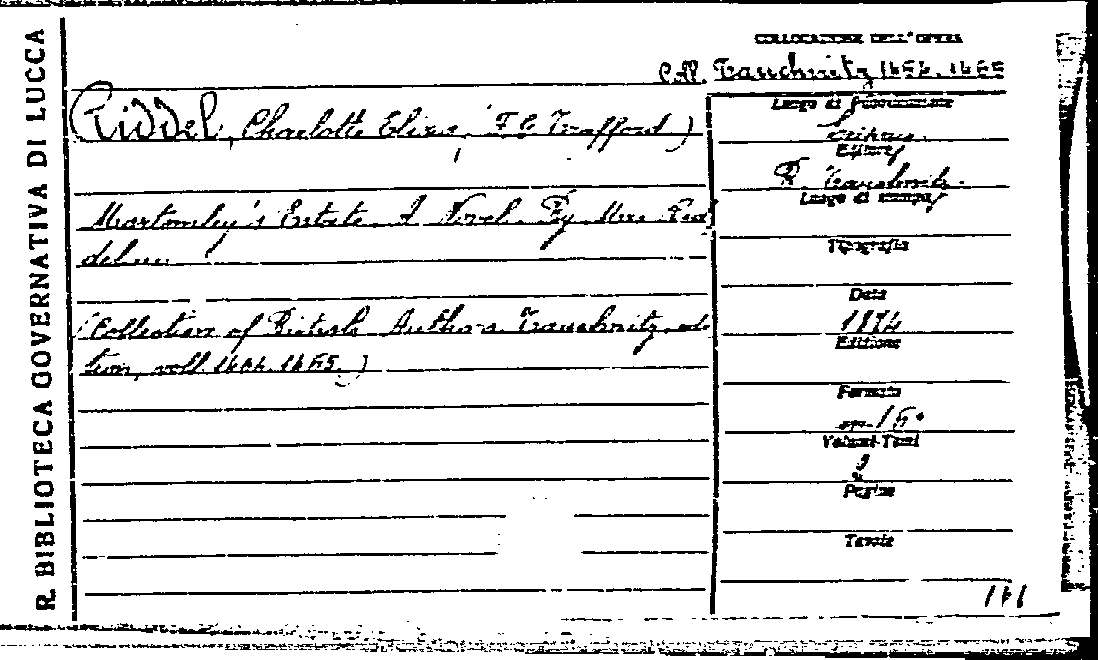 R. BIBLIOTECA GOVERNATIVA DI LUCCA
COLLOCAZIONE DELL'OPERA
Coll. Tauchnitz 1464. 1465
Riddel, Charlotte Eliza, (F. G. Trafford)
Mortomley's Estate. A Novel. By Mrs. Rid
del
(Collection of British Authors Tauchnitz edi
tion, voll. 1464. 1465.)
Luogo di pubblicazione
Leipzig
Editore
B. Tauchnitz
Luogo di stampa
Tipografia
Data
1874
Edizione
Formato
in-16°
Volumi-Tomi
2
Pagine
Tavole